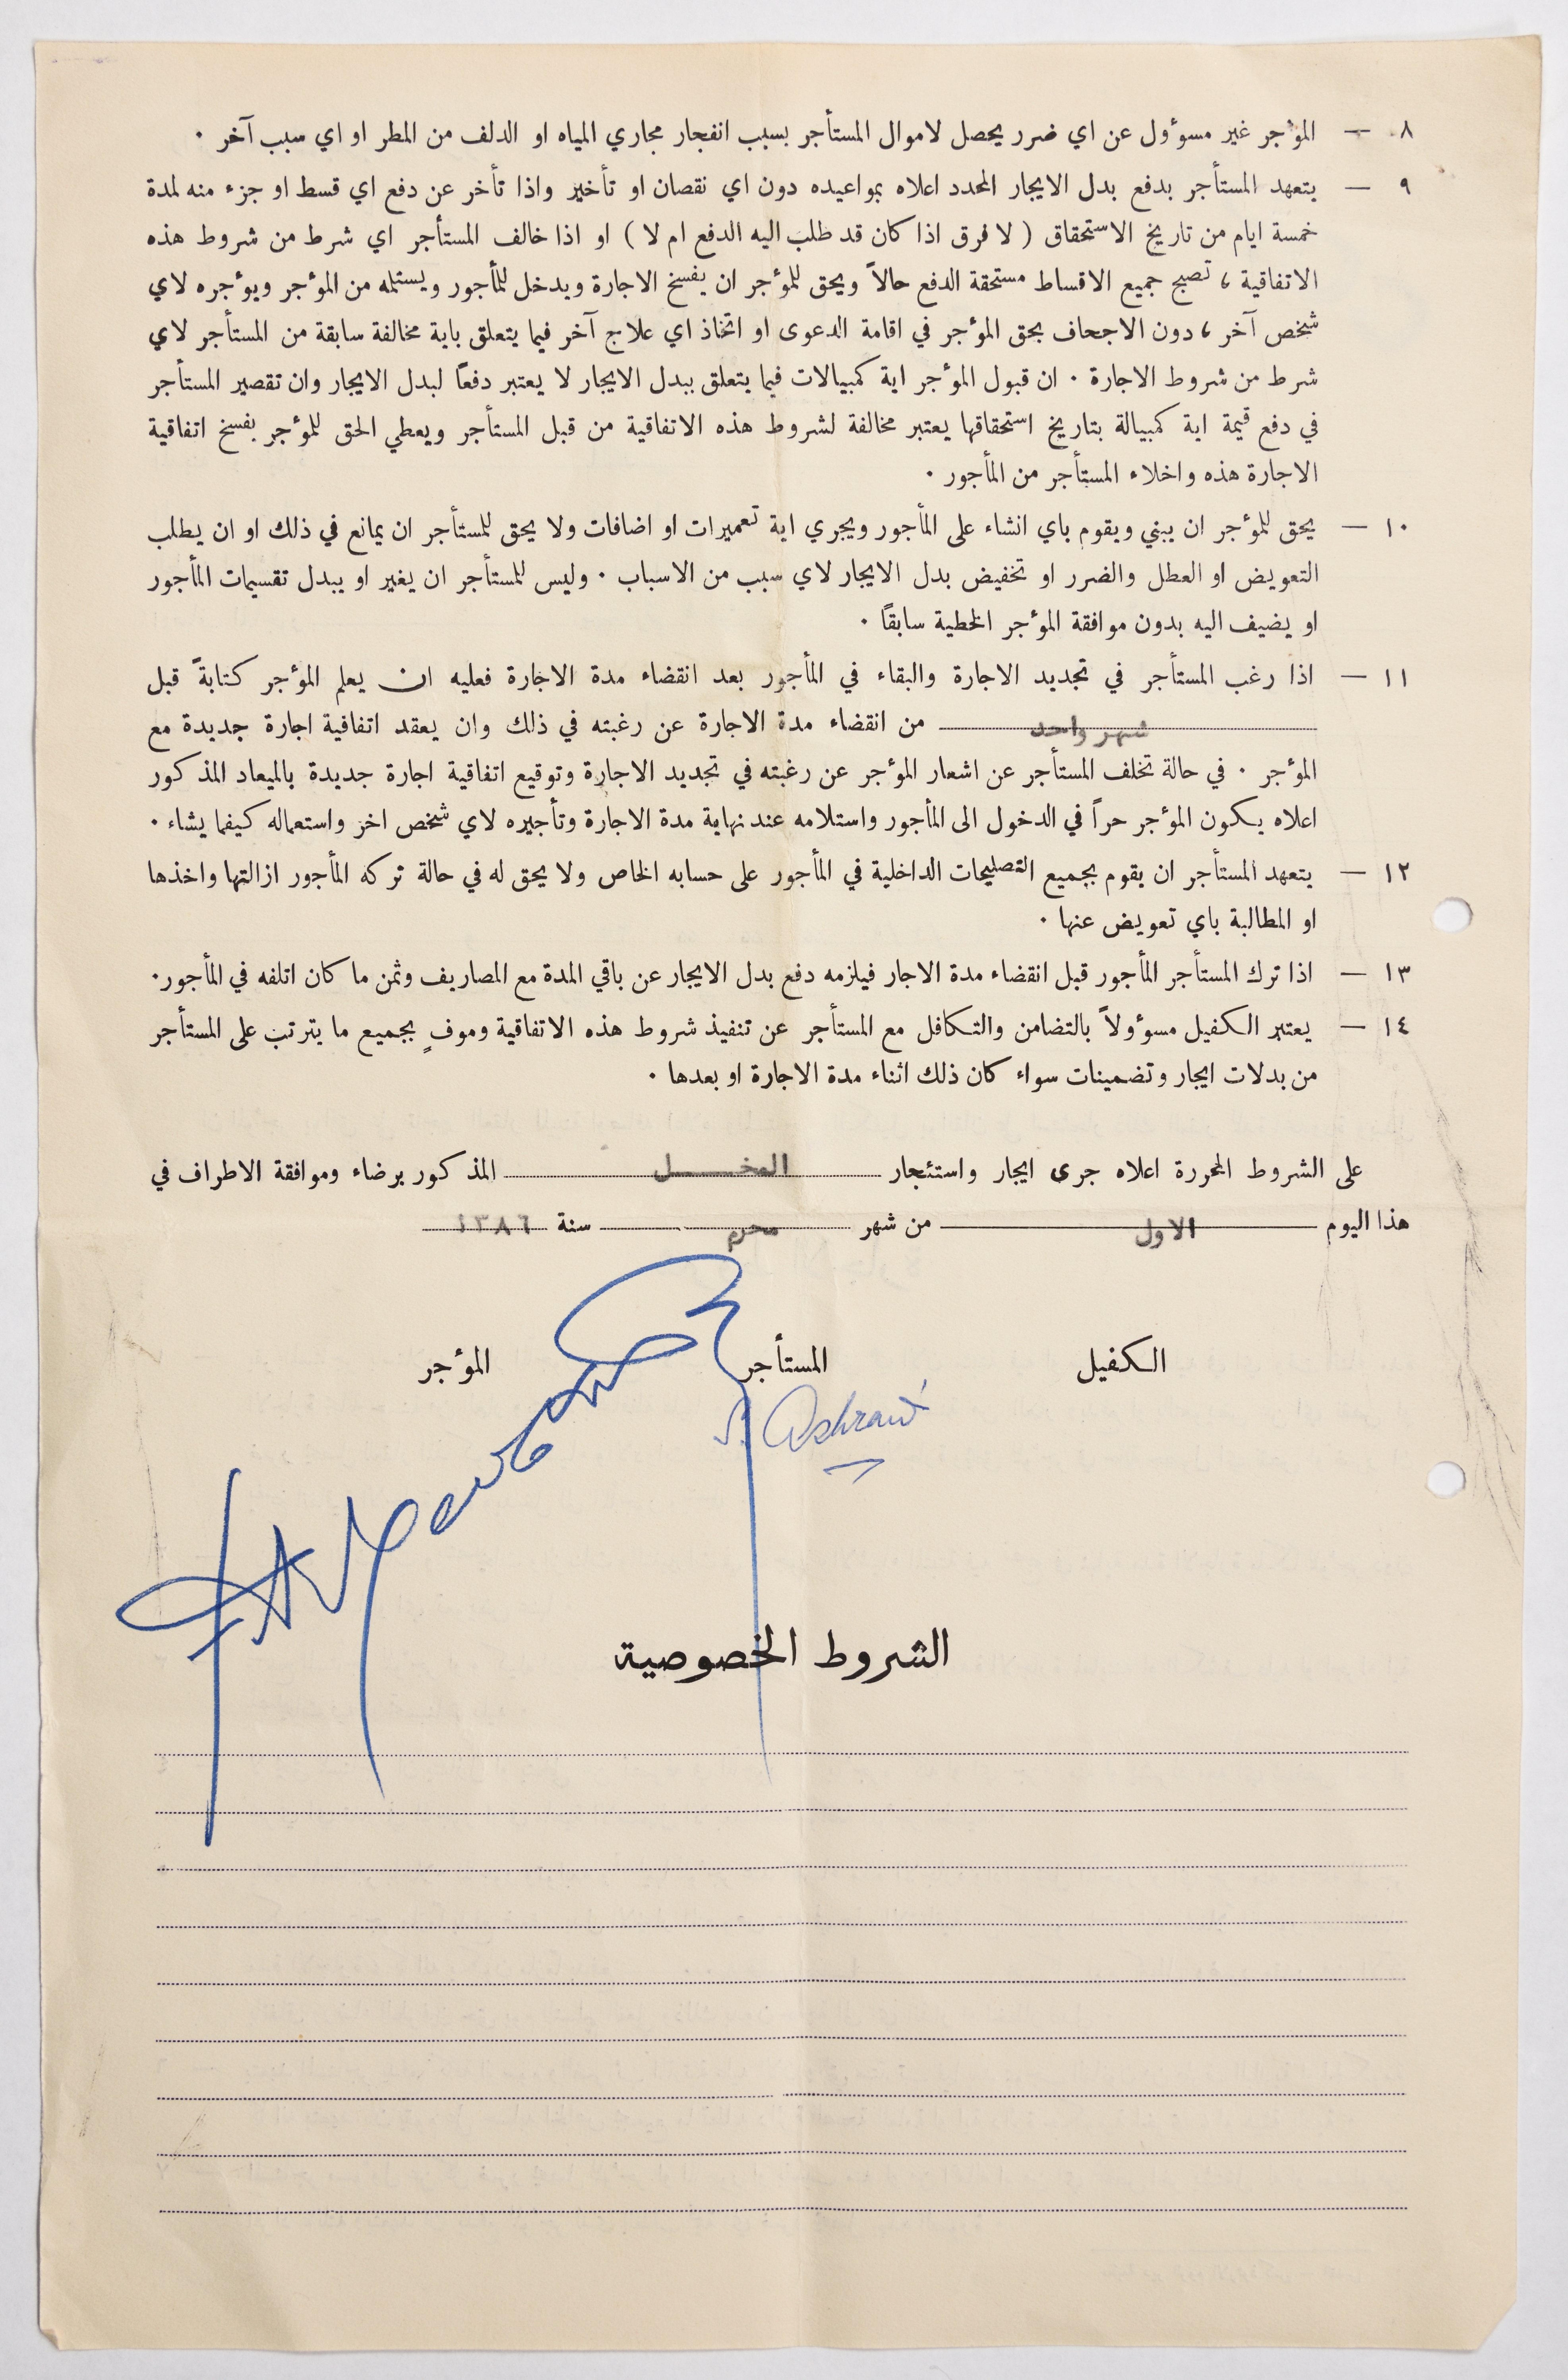 ٨ — المؤجر غير مسوؤل عن اي ضرر يحصل لاموال المستأجر بسبب انفجار مجاري المياه او الدلف من المطر او اي سبب آخر ٠
٩ — يتعهد المستأجر بدفع بدل الايجار المحدد اعلاه بمواعيده دون اي نقصان او تأخير واذا تأخر عن دفع اي قسط او جزء منه لمدة
خمسة ايام من تاريخ الاستحقاق ( لا فرق اذا كان قد طلب اليه الدفع ام لا ) او اذا خالف المستأجر اي شرط من شروط هذه
الاتفاقية ، تصبح جميع الاقساط مستحقة الدفع حالاً ويحق للمؤجر ان يفسخ الاجارة ويدخل للمأجور ويستلمه من المؤجر ويؤجره لاي
شخص آخر ، دون الاجحاف بحق المؤجر في اقامة الدعوى او اتخاذ اي علاج آخر فيما يتعلق باية مخالفة سابقة من المستأجر لاي
شرط من شروط الاجارة ٠ ان قبول المؤجر اية كمبيالات فيما يتعلق ببدل الايجار لا يعتبر دفعاً لبدل الايجار وان تقصير المستأجر
في دفع قيمة اية كمبيالة بتاريخ استحقاقها يعتبر مخالفة لشروط هذه الاتفاقية من قبل المستأجر ويعطي الحق للمؤجر بفسخ اتفاقية
الاجارة هذه واخلاء المستأجر من المأجور ٠
١٠ — يحق للمؤجر ان يبني ويقوم باي انشاء على المأجور ويجري اية تعميرات او اضافات ولا يحق للمستأجر ان يمانع في ذلك او ان يطلب
التعويض او العطل والضرر او تخفيض بدل الايجار لاي سبب من الاسباب ٠ وليس للمستأجر ان يغير او يبدل تقسيمات المأجور
او يضيف اليه بدون موافقة المؤجر الخطية سابقاً ٠
١١ — اذا رغب المستأجر في تجديد الاجارة والبقاء في المأجور بعد انقضاء مدة الاجارة فعليه ان يعلم المؤجر كتابةً قبل
شهر واحد من انقضاء مدة الاجارة عن رغبته في ذلك وان يعقد اتفاقية اجارة جديدة مع
المؤجر ٠ في حالة تخلف المستأجر عن اشعار المؤجر عن رغبته في تجديد الاجارة وتوقيع اتفاقية اجارة جديدة بالميعاد المذكور
اعلاه يكون المؤجر حراً في الدخول الى المأجور واستلامه عند نهاية مدة الاجارة وتأجيره لاي شخص اخر واستعماله كيفما يشاء ٠
١٢ — يتعهد المستأجر ان يقوم بجميع التصليحات الداخلية في المأجور على حسابه الخاص ولا يحق له في حالة تركه المأجور ازالتها واخذها
او المطالبة باي تعويض عنها ٠
١٣ — اذا ترك المستأجر المأجور قبل انقضاء مدة الاجار فيلزمه دفع بدل الايجار عن باقي المدة مع المصاريف وثمن ما كان اتلفه في المأجور٠
١٤ — يعتبر الكفيل مسوؤلاً بالتضامن والتكافل مع المستأجر عن تنفيذ شروط هذه الاتفاقية وموفٍ بجميع ما يترتب على المستأجر
من بدلات ايجار وتضمينات سواء كان ذلك اثناء مدة الاجارة او بعدها ٠
على الشروط المحررة اعلاه جرى ايجار واستئجار المذكور برضاء وموافقة الاطراف في
هذا اليوم الاول من شهر محرم سنة ١٣٨٦
الكفيل المستأجر المؤجر
S. Ashrawi
الشروط الخصوصية